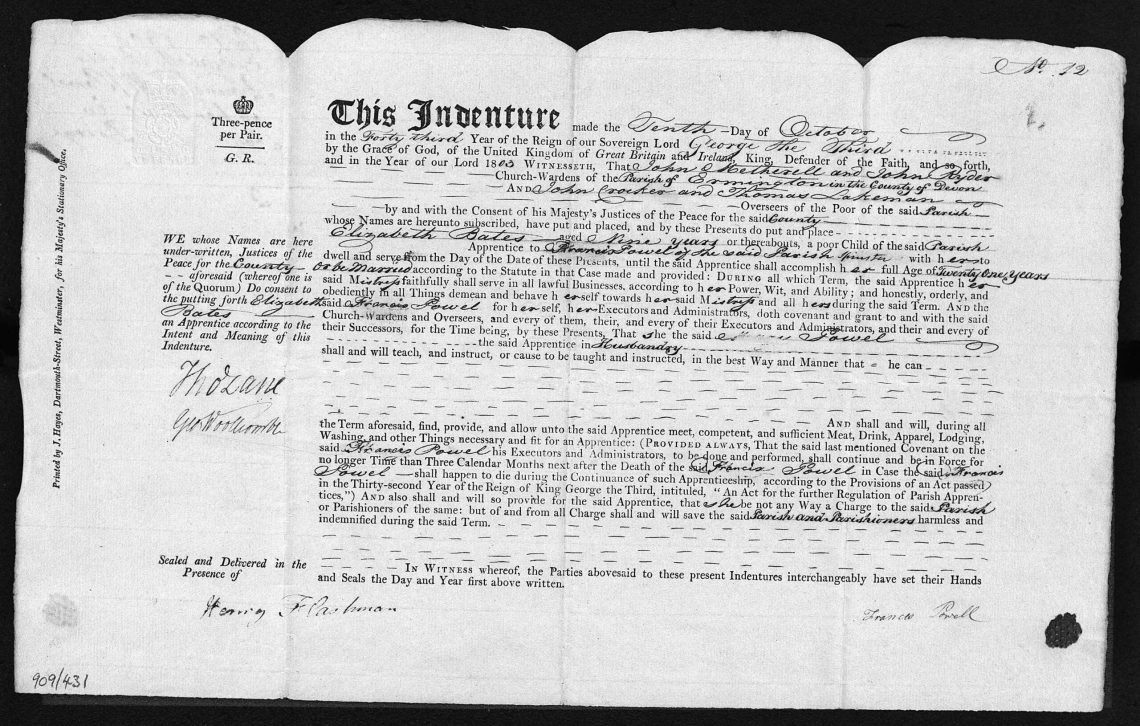 No. 12
Three-pence
per Pair.
G. R.
Printed by J. Hayes, Dartmouth-Street, Westminster, for his Majesty's Stationary Office.
This Indenture made the Tenth Day of October
in the Forty third Year of the Reign of our Sovereign Lord George the Third
by the Grace of God, of the United Kingdom of Great Britain and Ireland, King, Defender of the Faith, and so forth,
and in the Year of our Lord 1803 WITNESSETH, That John Netherell and John Ryder
Church-Wardens of the Parish of Ermington in the County of Devon
AND John Crocker and Thomas Lakeman
Overseers of the Poor of the said Parish
by and with the Consent of his Majesty's Justices of the Peace for the said County
whose Names are hereunto subscribed, have put and placed, and by these Presents do put and place
Elizabeth Bates aged Nine years or thereabouts, a poor Child of the said Parish
Apprentice to Francis Powel of the said Parish Spinster with her to
dwell and serve from the Day of the Date of these Presents, until the said Apprentice shall accomplish her full Age of Twenty One years
or be Married according to the Statute in that Case made and provided: DURING all which Term, the said Apprentice her
said Mistress faithfully shall serve in all lawful Businesses, according to her Power, Wit, and Ability; and honestly, orderly, and
obediently in all Things demean and behave herself towards her said Mistress and all hers during the said Term. AND the
said Francis Powel for herself, her Executors and Administrators, doth covenant and grant to and with the said
Church-Wardens and Overseers, and every of them, their, and every of their Executors and Administrators, and their and every of
their Successors, for the Time being, by these Presents, That she the said Powel
the said Apprentice in Husbandry
shall and will teach, and instruct, or cause to be taught and instructed, in the best Way and Manner that he can
AND shall and will, during all
the Term aforesaid, find, provide, and allow unto the said Apprentice meet, competent, and sufficient Meat, Drink, Apparel, Lodging,
Washing, and other Things necessary and fit for an Apprentice: (PROVIDED ALWAYS, That the said last mentioned Covenant on the
said Francis Powel his Executors and Administrators, to be done and performed, shall continue and be in Force for
no longer Time than Three Calendar Months next after the Death of the said Francis Powel in Case the said Francis
Powel shall happen to die during the Continuance of such Apprenticeship, according to the Provisions of an Act passed
in the Thirty-second Year of the Reign of King George the Third, intituled, "An Act for the further Regulation of Parish Appren-
tices,") AND also shall and will so provide for the said Apprentice, that she be not any Way a Charge to the said Parish
or Parishioners of the same: but of and from all Charge shall and will save the said Parish and Parishioners harmless and
indemnified during the said Term.
IN WITNESS whereof, the Parties abovesaid to these present Indentures interchangeably have set their Hands
and Seals the Day and Year first above written.
WE whose Names are here
under-written, Justices of the
Peace for the County
aforesaid (whereof one is
of the Quorum) Do consent to
the putting forth Elizabeth
Bates
an Apprentice according to the
Intent and Meaning of this
Indenture.
Thos Lane
Geo Woollcombe
Sealed and Delivered in the
Presence of
Henry F Cashman
Francis Powell
909/431